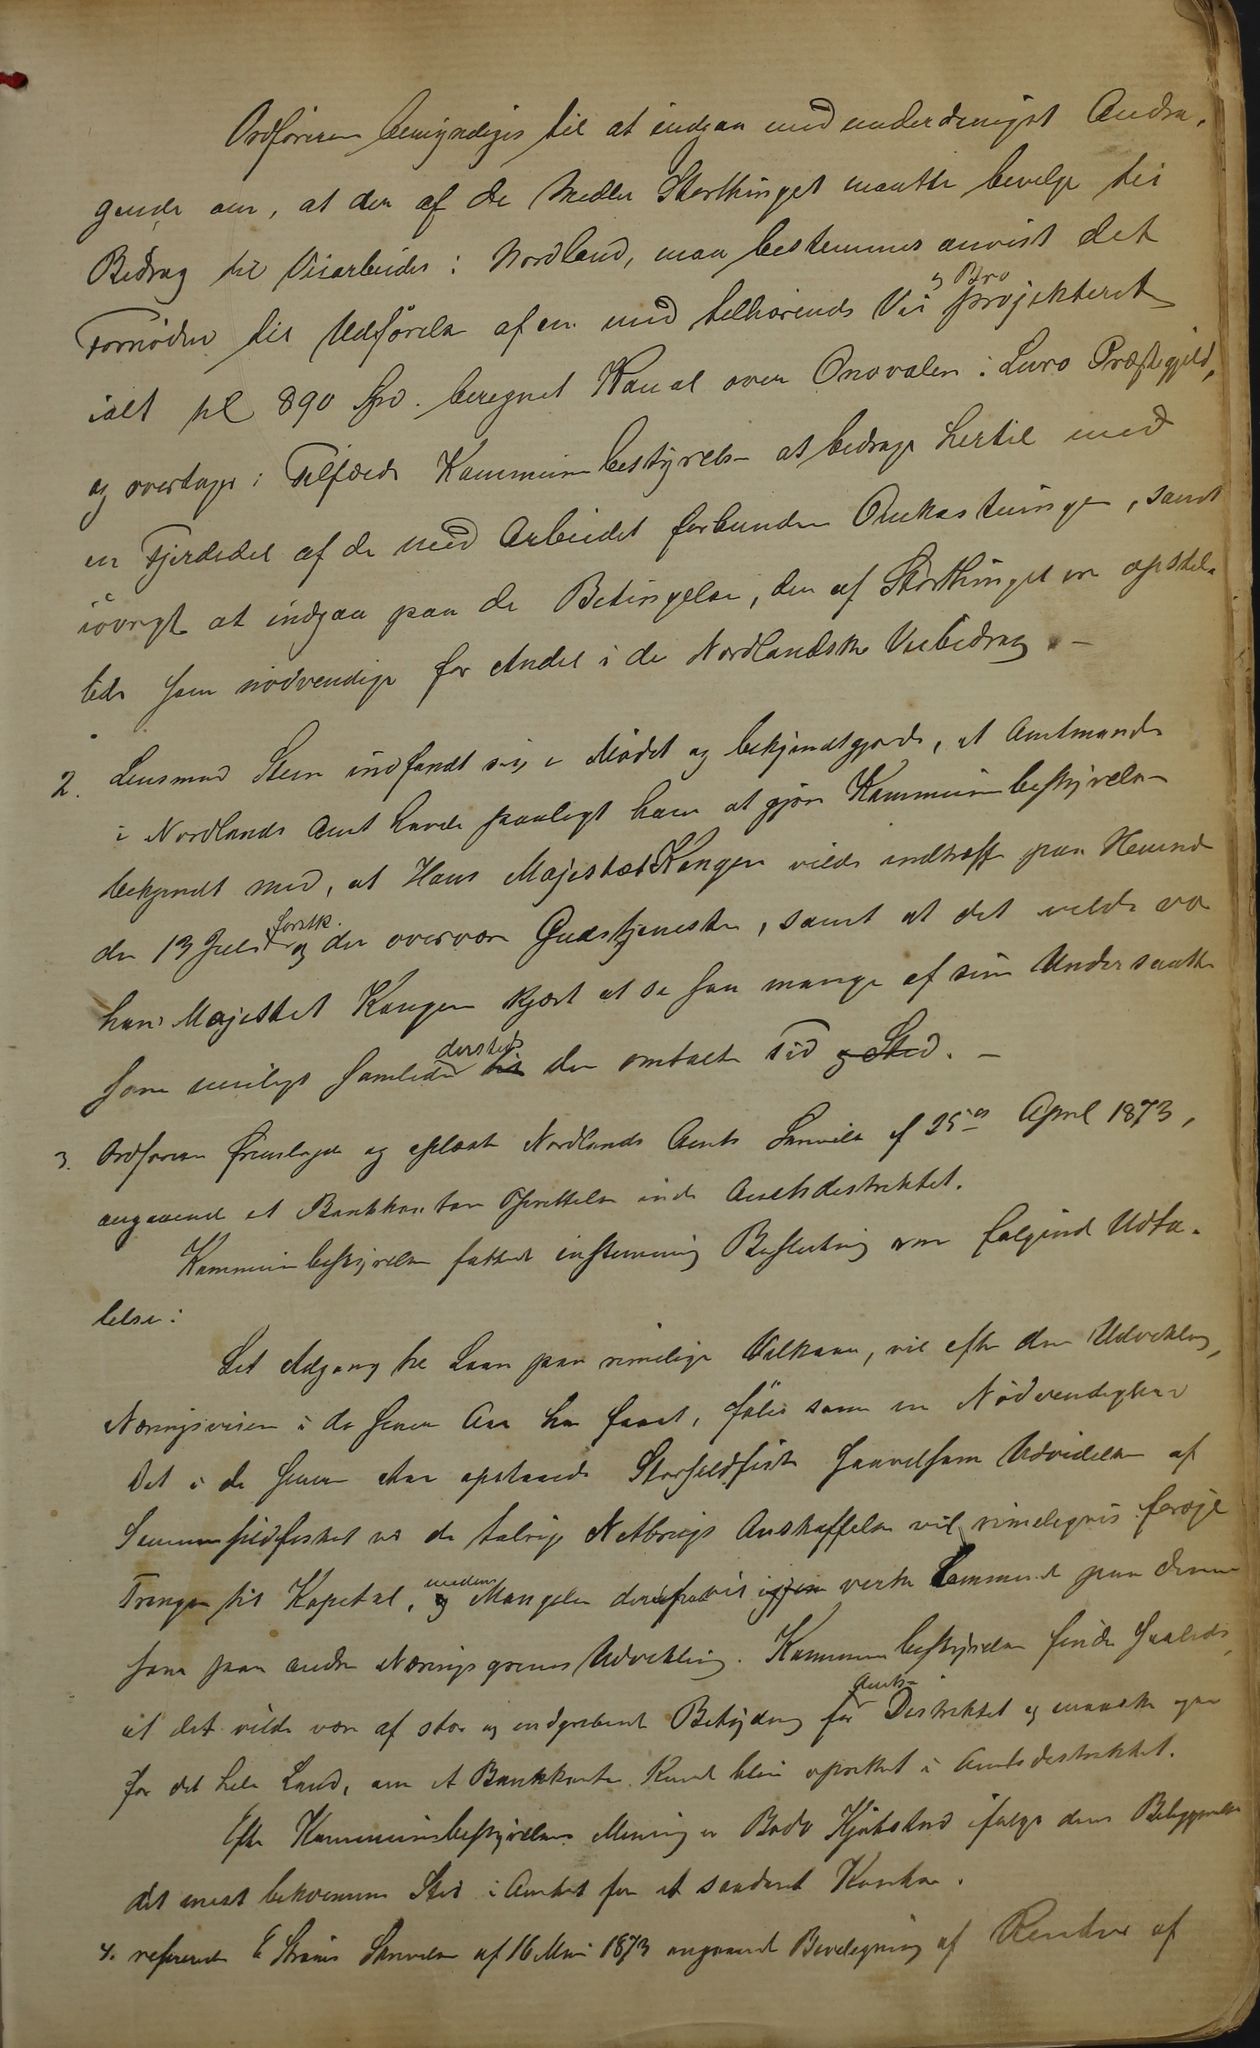 Ordføreren bemyndiges til at indgaa med underdanigst Andra-
gende om, at der af de Midler Storthinget maatte bevilge til
Bidrag til Veiarbeider i Nordland, maa bestemmes anvist det
Fornødne til Udførelse af en med tilhørende Vei og Bro projekteret
ialt til 890 Spd. beregnet Kanal over Onøvalen i Lurø Præstegjeld,
og overtager i Tilfælde Kommunebestyrelsen at bidrage hertil med
en Fjerdedel af de med Arbeidet forbundne Omkostninger, samt
iøvrigt at indgaa paa de Betingelser, der af Storthinget er opstil-
lede som nødvendige for Andel i de Nordlandske Veibidrag. -
2. Lensmand Steen indfandt sig i Mødet og bekjendtgjorde, at Amtmanden
i Nordlands Amt havde paalagt ham at gjøre Kommunebestyrelsen
bekjendt med, at Hans Majestæt Kongen vilde indtræffe paa
den 13 Juli førstk. og der overvære Gudstjenesten, samt at det vilde være
hans Majestet Kongen kjært at se saa mange af sine Undersaatter
som muligt samlede dersteds til den omtalte Tid og Sted. -
3. Ordføreren fremlagde og oplæste Nordlands Amts Skrivelse af 25de April 1873,
angaaende et Bankkontors Oprettelse inde Amtsdistriktet.
Kommunebestyrelsen fattede enstemmig Beslutning om følgende Udta-
lelse:
Let Adgang til Laan paa rimelige Vilkaar, vil efter den Udvikling,
Næringsveien i de senere Aar har faaet, føles som en Nødvendighed
Det i de senere Aar opstaaede Storsildfiske saavelsom Udvidelsen af
Sommersildfisket ved de talrige Notbrugs Anskaffelse vil rimeligvis forøge
Trangen til Kapital, og medens Mangelen derpaa vil igjen virke lammende paa denne
som paa andre Næringsgrenes Udvikling. Kommunebestyrelsen finder saaledes,
at det vilde være af stor og indgribende Betydning for Amts- Distriktet og maaske ogsaa
for det hele Land, om et Bankkontor kunde blive oprettet i Amtsdistriktet.
Efter Kommunebestyrelsens Mening er Bodø Kjøbstad ifølge dens Beliggenhed
det mest bekvemme Sted i Amtet for et saadant Kontor.
4. refererede E Skrivelse af 16 Mai 1873 angaaende Bevilgning af Renter af